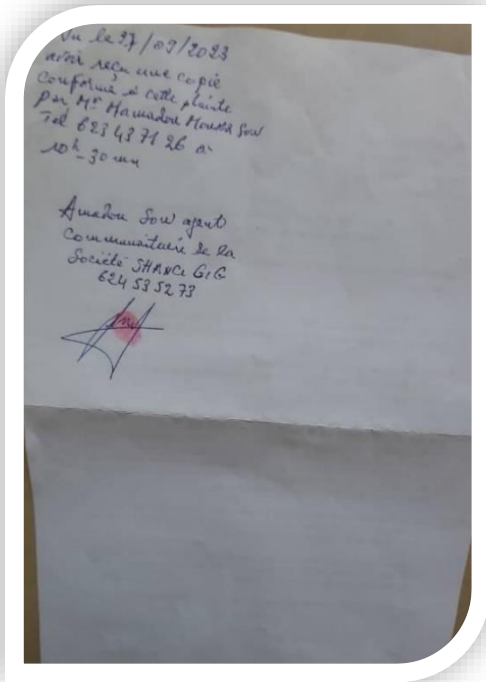 Vu le 27/09/2023
avoir reçu une copie
Conforme à cette plainte
Par Mr Mamadou Moussa Sow
Tel 623 43 71 26 à
10h-30mn
Amadou Sow agent
Communautaire de la
Société SHANCI GIG
624 53 52 73